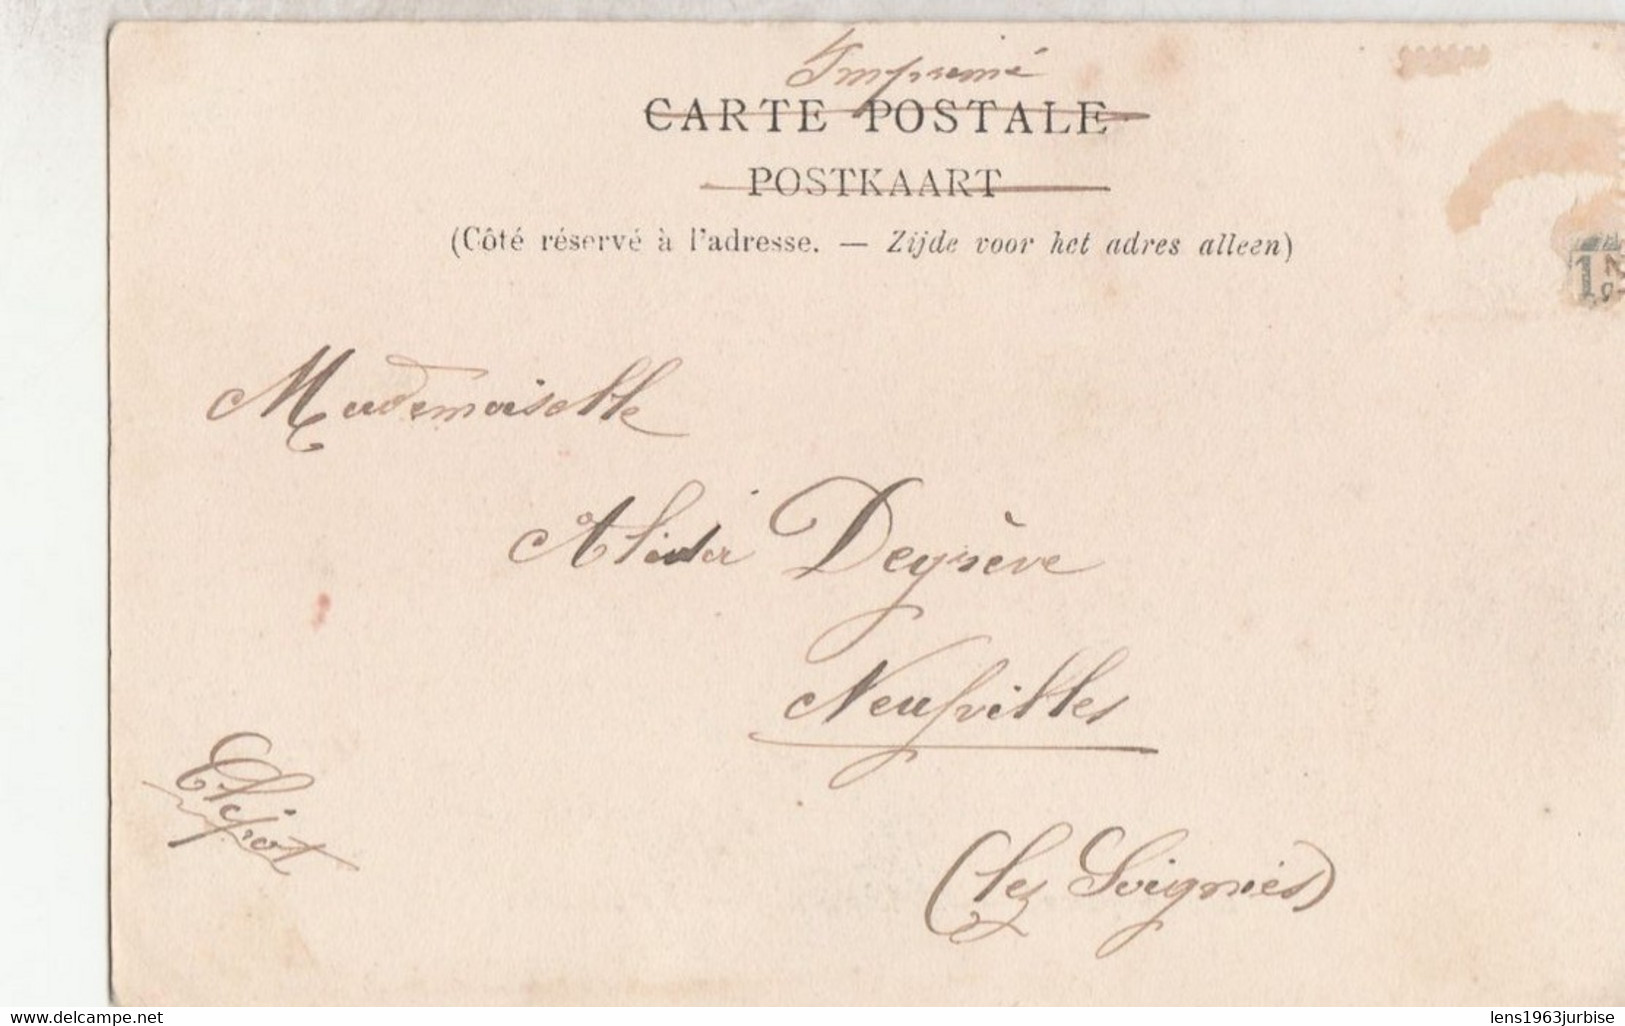 Imprimé
CARTE POSTALE
POSTKAART
(Côté réservé à l'adresse. — Zijde voor het adres alleen)
Mademoiselle
Deyrève
Neufvilles
(lez Soignies)
www.delcampe.net
lens1963jurbise